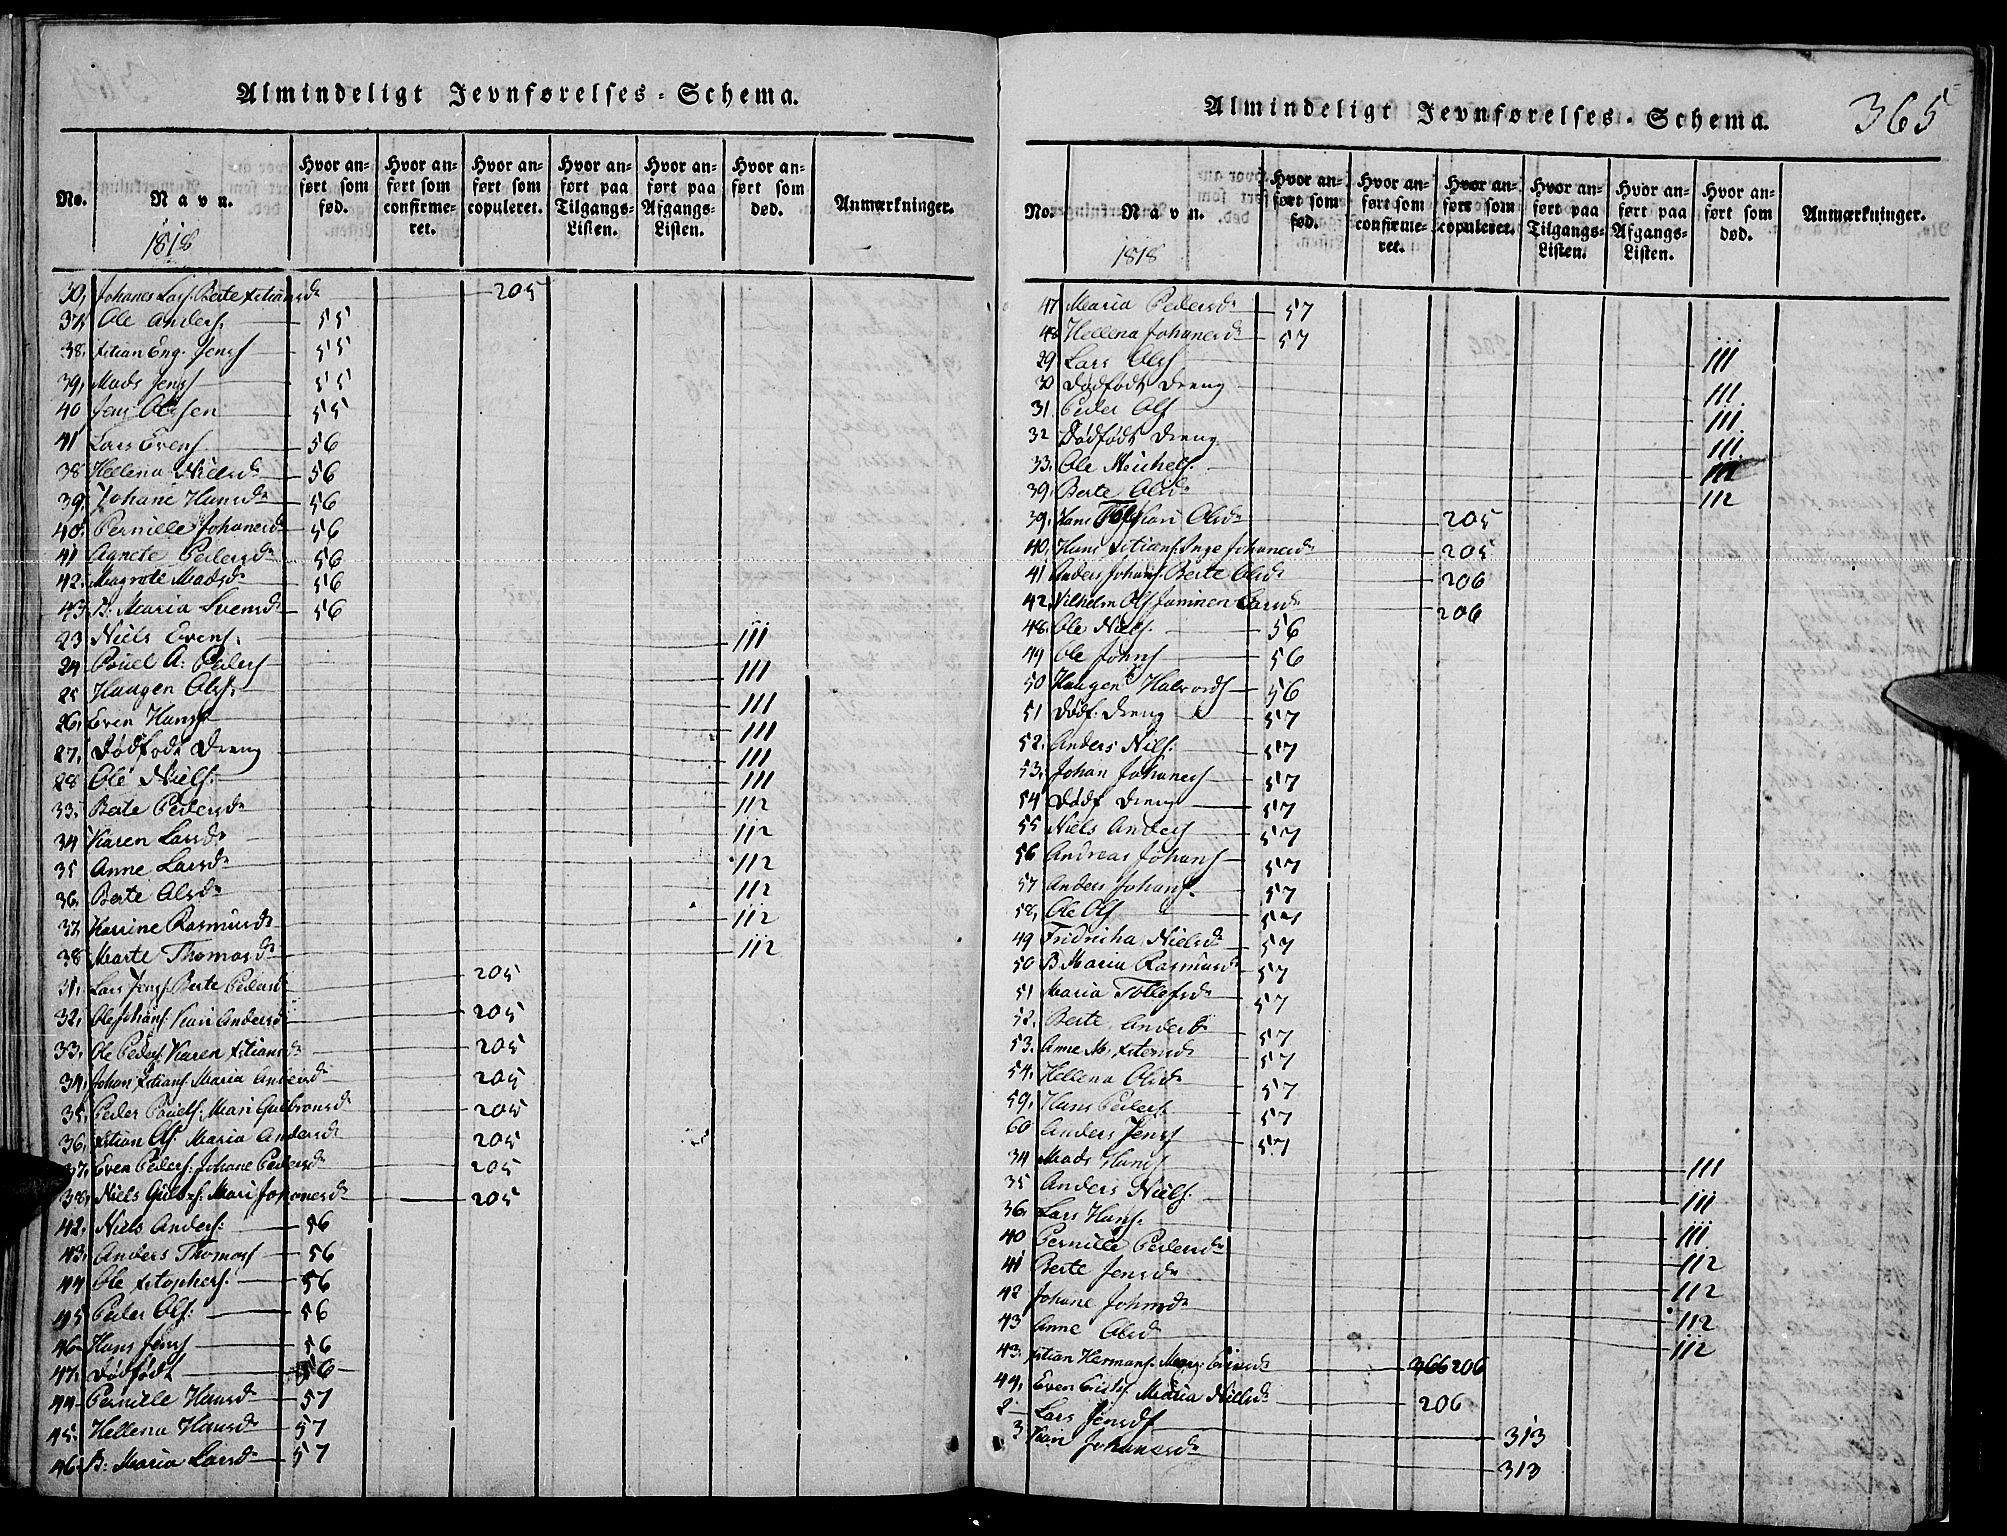 Almindeligt Jevnførelses-Schema.
No. Navn. Hvor anført som fød. Hvor anført som confirmeret. Hvor anført som copuleret. Hvor anført paa Tilgangs-Listen. Hvor anført paa Afgangs-Listen. Hvor anført som død. Anmærkninger.
1818
30, Johanes Lars. Berte Xstiansdr 205
37, Ole Anders. 55
38. Xstian Eng. Jensf 55
39, Mads Jensf 55
40 Jens Olesen 55
41 Lars Evensf 56
38 Hellena Nielsdr 56
39, Johane Hansdr 56
40. Pernille Johanesdr 56
41 Agnete Pedersdr 56
42. Magrete Madsdr 56
43. B: Maria Svensdr 56
23 Niels Evens. 111
24 Pouel A: Pedersf 111
25 Haagen Ols. 111
26, Even Hansf 111
27, Dødfødt Dreng 111
28 Ole Niels. 111
33. Berte Pedersdr 112
34 Karen Larsdr 112
35 Anne Larsdr 112
36, Berte Olsdr 112
37 Karine Rasmusdr 112
38 Marte Thomasdr 112
31, Lars Jensf. Berte Pedersdr 205
32, Ole Johans. Kari Andersdr 205
33, Ole Pedersf. Karen Xstiansdr 205
34, Johan Xstiansf Maria Andersdr 205
35, Peder Pouels. Mari Gulbransdr 205
36, Xstian Ols. Maria Andersdr 205
37, Even Peders. Johane Pedersdr 205
38, Niels Gulbr. Mari Johanesdr 205
42, Niels Anders. 56
43, Anders Thomasf 56
44 Ole Xstophers. 56
45 Peder Ols. 56
46 Hans Jensf 56
47. Dødfødt 56
44 Pernille Hansdr 57
45. Hellena Hansdr 57
46. B: Maria Larsdr 57
Almindeligt Jevnførelses-Schema.
365
No. Navn. Hvor anført som fød. Hvor anført som confirmeret. Hvor anført som copuleret. Hvor anført paa Tilgangs-Listen. Hvor anført paa Afgangs-Listen. Hvor anført som død. Anmærkninger.
1818
47 Maria Pedersdr 57
48 Hellena Johanesdr 57
29 Lars Olsf 111
30 Dødfødt Dreng 111
31. Peder Olsf 111
32 Dødfødt Dreng 111
33. Ole Michels. 111
39, Berte Olsdr 112
39, Hans Kari Olsdr 205
40, Hans Xstians. Inge Johanesdr 205
41 Anders Johans. Berte Olsdr 206
42, Vilhelm Ols Larsdr 206
48. Ole Niels. 56
49 Ole Johnsf 56
50 Haagen Halvordsf 56
51 Dødf. Dreng 57
52. Anders Nils. 57
53. Johan Johanesf 57
54 Dødf Dreng 57
55 Niels Andersf 57
56 Andreas Johansf 57
57 Anders Johans. 57
58, Ole Olsf 57
49 Fridricha Nielsdr 57
50 B Maria Rasmusdr 57
51 Maria Tollefsdr 57
52. Berte Andersdr 57
53. Anne M: Xstensdr 57
54. Hellena Olsdr 57
59, Hans Peders. 57
60 Anders Jensf 57
34 Mads Hansf 111
35 Anders Niels. 111
36. Lars Hans. 111
40 Pernille Pedersdr 112
41 Berte Jensdr 112
42 Johane Johnsdr 112
43 Anne Olsdr 112
43. Xstian Hermans. 206
44, Even Maria Nielsdr 206
2 Lars Jensdf 313
3 Kari Johanesdr 313